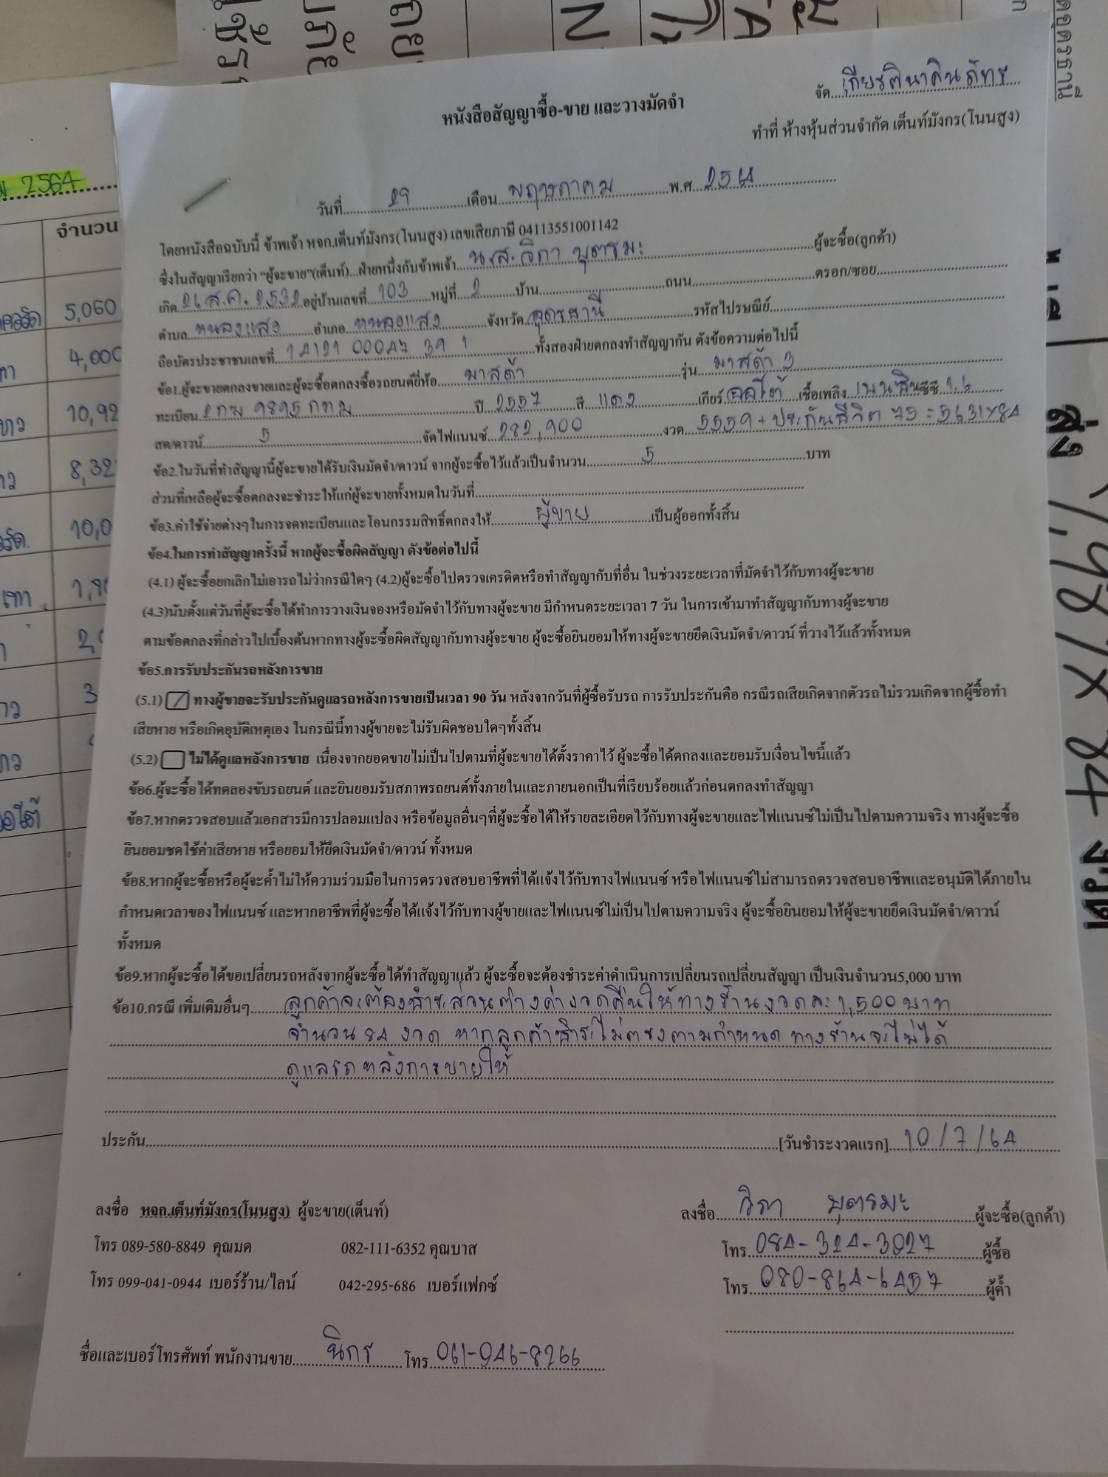 จัด เกียรตินาคินภัทร
หนังสือสัญญาซื้อ-ขาย และวางมัดจำ
ทำที่ ห้างหุ้นส่วนจำกัด เต็นท์มังกร(โนนสูง)
วันที่ 29 เดือน พฤษภาคม พ.ศ. 2564
โดยหนังสือฉบับนี้ ข้าพเจ้า หจก.เต็นท์มังกร(โนนสูง) เลขเสียภาษี 04113551001142
ซึ่งในสัญญาเรียกว่า "ผู้จะขาย"(เต็นท์)...ฝ่ายหนึ่งกับข้าพเจ้า น.ส. วิภา บุตรมะ ผู้จะซื้อ(ลูกค้า)
เกิด ส.ค. 2532 อยู่บ้านเลขที่ 103 หมู่ที่ 2 บ้าน ถนน ตรอก/ซอย
ตำบล หนองแสง อำเภอ หนองแสง จังหวัด อุดรธานี รหัสไปรษณีย์
ถือบัตรประชาชนเลขที่ 14191 00047 39 1 ทั้งสองฝ่ายตกลงทำสัญญากัน ดังข้อความต่อไปนี้
ข้อ1.ผู้จะขายตกลงขายและผู้จะซื้อตกลงซื้อรถยนต์ยี่ห้อ มาสด้า รุ่น มาสด้า 3
ทะเบียน 2กม 9895 กทม ปี 2557 สี แดง เกียร์ ออโต้ เชื้อเพลิง เบนซิน ซีซี 1.6
สด/ดาวน์ 5 จัดไฟแนนซ์ 282,900 งวด 5559 + ประกันชีวิต 75 = 5631x84
ข้อ2.ในวันที่ทำสัญญานี้ผู้จะขายได้รับเงินมัดจำ/ดาวน์ จากผู้จะซื้อไว้แล้วเป็นจำนวน 5 บาท
ส่วนที่เหลือผู้จะซื้อตกลงจะชำระให้แก่ผู้จะขายทั้งหมดในวันที่
ข้อ3.ค่าใช้จ่ายต่างๆในการจดทะเบียนและโอนกรรมสิทธิ์ตกลงให้ ผู้ขาย เป็นผู้ออกทั้งสิ้น
ข้อ4.ในการทำสัญญาครั้งนี้ หากผู้จะซื้อผิดสัญญา ดังข้อต่อไปนี้
(4.1) ผู้จะซื้อยกเลิกไม่เอารถไม่ว่ากรณีใดๆ (4.2)ผู้จะซื้อไปตรวจเครดิตหรือทำสัญญากับที่อื่น ในช่วงระยะเวลาที่มัดจำไว้กับทางผู้จะขาย
(4.3)นับตั้งแต่วันที่ผู้จะซื้อได้ทำการวางเงินจองหรือมัดจำไว้กับทางผู้จะขาย มีกำหนดระยะเวลา 7 วัน ในการเข้ามาทำสัญญากับทางผู้จะขาย
ตามข้อตกลงที่กล่าวไปเบื้องต้นหากทางผู้จะซื้อผิดสัญญากับทางผู้จะขาย ผู้จะซื้อยินยอมให้ทางผู้จะขายยึดเงินมัดจำ/ดาวน์ ที่วางไว้แล้วทั้งหมด
ข้อ5.การรับประกันรถหลังการขาย
(5.1) ทางผู้ขายจะรับประกันดูแลรถหลังการขายเป็นเวลา 90 วัน หลังจากวันที่ผู้ซื้อรับรถ การรับประกันคือ กรณีรถเสียเกิดจากตัวรถไม่รวมเกิดจากผู้ซื้อทำ
เสียหาย หรือเกิดอุบัติเหตุเอง ในกรณีนี้ทางผู้ขายจะไม่รับผิดชอบใดๆทั้งสิ้น
(5.2) ไม่ได้ดูแลหลังการขาย เนื่องจากยอดขายไม่เป็นไปตามที่ผู้จะขายได้ตั้งราคาไว้ ผู้จะซื้อได้ตกลงและยอมรับเงื่อนไขนี้แล้ว
ข้อ6.ผู้จะซื้อได้ทดลองขับรถยนต์ และยินยอมรับสภาพรถยนต์ทั้งภายในและภายนอกเป็นที่เรียบร้อยแล้วก่อนตกลงทำสัญญา
ข้อ7.หากตรวจสอบแล้วเอกสารมีการปลอมแปลง หรือข้อมูลอื่นๆที่ผู้จะซื้อได้ให้รายละเอียดไว้กับทางผู้จะขายและไฟแนนซ์ไม่เป็นไปตามความจริง ทางผู้จะซื้อ
ยินยอมชดใช้ค่าเสียหาย หรือยอมให้ยึดเงินมัดจำ/ดาวน์ ทั้งหมด
ข้อ8.หากผู้จะซื้อหรือผู้จะค้ำไม่ให้ความร่วมมือในการตรวจสอบอาชีพที่ได้แจ้งไว้กับทางไฟแนนซ์ หรือไฟแนนซ์ไม่สามารถตรวจสอบอาชีพและอนุมัติได้ภายใน
กำหนดเวลาของไฟแนนซ์ และหากอาชีพที่ผู้จะซื้อได้แจ้งไว้กับทางผู้ขายและไฟแนนซ์ไม่เป็นไปตามความจริง ผู้จะซื้อยินยอมให้ผู้จะขายยึดเงินมัดจำ/ดาวน์
ทั้งหมด
ข้อ9.หากผู้จะซื้อได้ขอเปลี่ยนรถหลังจากผู้จะซื้อได้ทำสัญญาแล้ว ผู้จะซื้อจะต้องชำระค่าดำเนินการเปลี่ยนรถเปลี่ยนสัญญา เป็นเงินจำนวน5,000 บาท
ข้อ10.กรณี เพิ่มเติมอื่นๆ ลูกค้าจะต้องชำระส่วนต่างค่างวดคืนให้ทางร้านงวดละ 1,500 บาท
จำนวน 84 งวด หากลูกค้าชำระไม่ตรงตามกำหนด ทางร้านจะไม่ได้
ดูแลรถหลังการขายให้
ประกัน [วันชำระงวดแรก] 10/7/64
ลงชื่อ หจก.เต็นท์มังกร(โนนสูง) ผู้จะขาย(เต็นท์)
ลงชื่อ วิภา บุตรมะ ผู้จะซื้อ(ลูกค้า)
โทร 089-580-8849 คุณมด 082-111-6352 คุณบาส
โทร 084-324-3027 ผู้ซื้อ
โทร 099-041-0944 เบอร์ร้าน/ไลน์ 042-295-686 เบอร์แฟกซ์
โทร 080-864-6457 ผู้ค้ำ
ชื่อและเบอร์โทรศัพท์ พนักงานขาย นิกร โทร 061-046-8266
2564
จำนวน
5,060
4,000
ส่ง 7,987x84 งวด